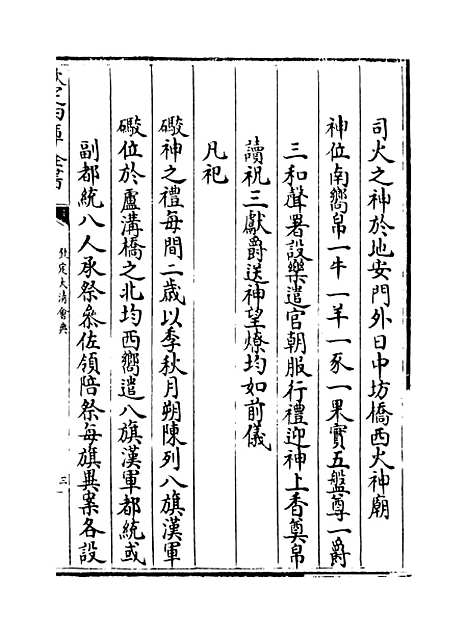 司火之神於地安門外日中坊橋西火神廟
神位南嚮帛一牛一羊一豕一果實五盤尊一爵
三和聲署設樂遣官朝服行禮迎神上香奠帛
讀祝三獻爵送神望燎均如前儀
凡祀
礮神之禮每間二歲以季秋月朔陳列八旗漢軍
礮位於盧溝橋之北均西嚮遣八旗漢軍都統或
副都統八人承祭叅佐領陪祭每旗異案各設
欽定四庫全書
欽定大清會典